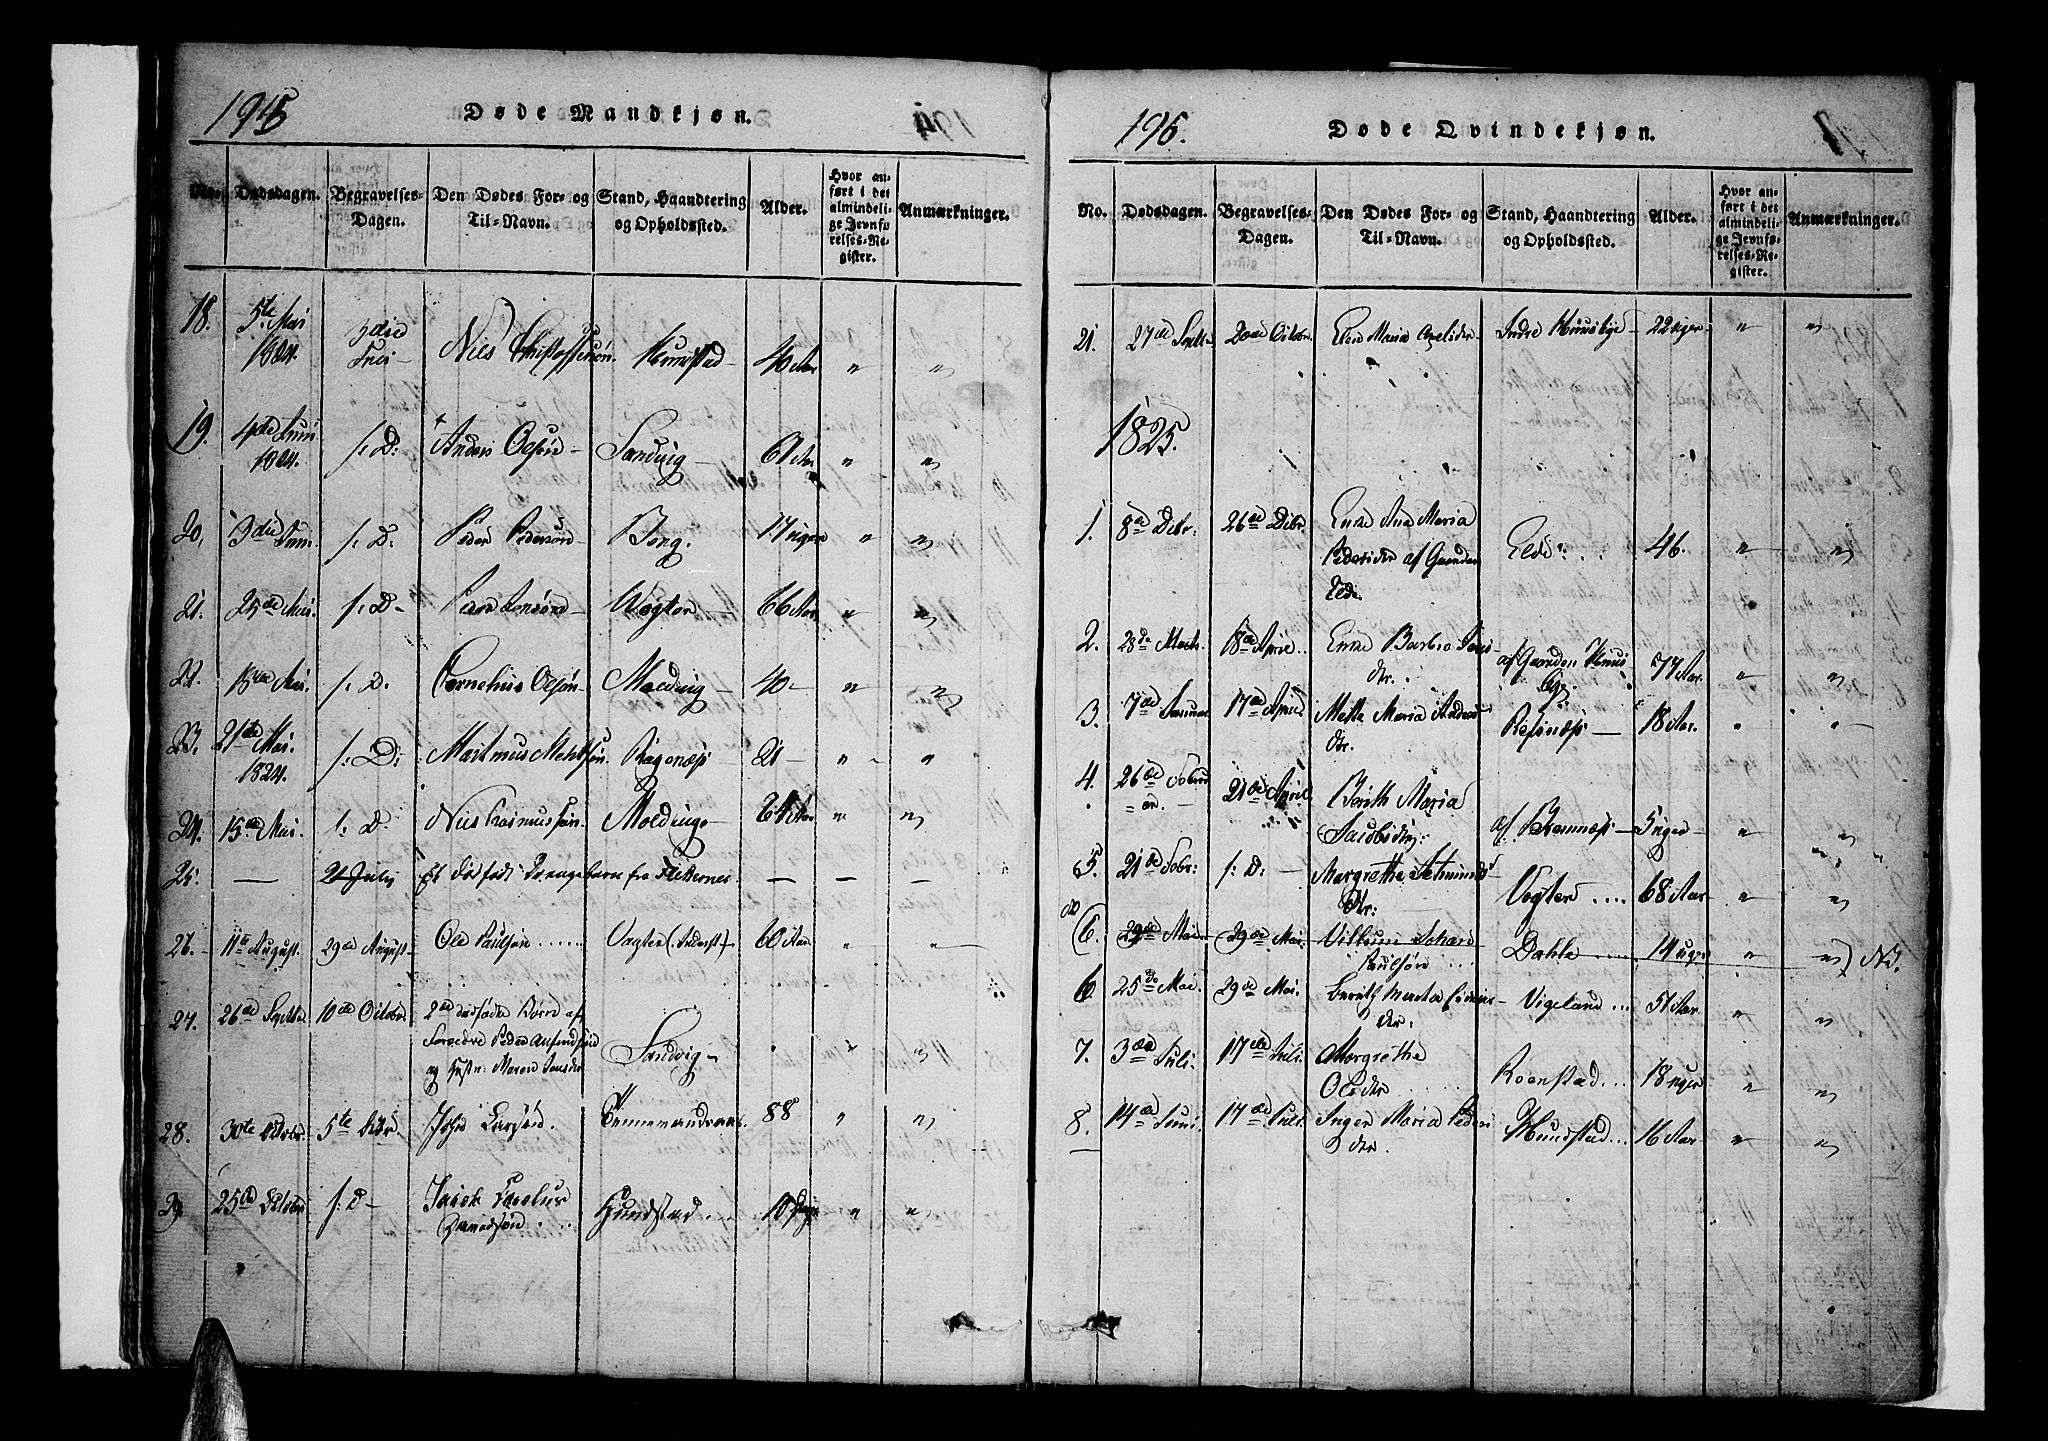 1945
Døde Mandkjøn.
194
No. Dødsdagen. Begravelses-Dagen. Den Dødes For- og Til-Navn. Stand, Haandtering og Opholdssted. Alder. Hvor anført i det almindelige Jevnførelses-Register. Anmærkninger.
18. 5te Mai 1824. 3die Juni Nils Christoffersøn Hundstad 40 Aar " "
19. 4de Juni 1824. s: D: Anders Olsøn Sandvig 61 Aar " "
20. 3die Juni s: D: Peder Pedersøn Borg. 17 uger " "
21. 25de Mai s: D Jensøn Vogter 66 Aar " "
22. Mai. s: D. Cornelius Olsøn Molding 40 " "
23. 21de Mai. 1824. s: D: Martinus 21 " "
24. 15de Mai s: D. Nils Rasmussøn Molding 64 Aar " "
25. — 21 July Et dødfødt Drengebarn fra — — —
26. 11te August. 29de August Ole Paulsøn Vogter 60 Aar " "
27. 26de Septbr 10de Octobr. 2de dødfødte Børn af Peder og Hustr: Maren Jensdr Sandvig " "
28. 30te Octobr. 5te John Larsøn 88 " "
29 25de Octobr s: D Jacob Hundstad 10 " "
196.
Døde Qvindekjøn.
No. Dødsdagen. Begravelses-Dagen. Den Dødes For- og Til-Navn. Stand, Haandtering og Opholdssted. Alder. Hvor anført i det almindelige Jevnførelses-Register. Anmærkninger.
21. 27de Septbr 20de Octobr. Elen Maria Indre 22 uger " "
1825.
1. 8de Decbr. 26de Decbr. Enke Ana Maria Pedersdr af Gaarden Elde. Elde 46. " "
2. 28de Marts. 18de April. Enke Barbro Jens-dr. af Gaarden 77 Aar. " "
3. 7de Januar 17de April Mette Maria Anders dr. 18 Aar. " "
4. 26de Febru ar. 21de April Berith Maria Jacobsdtr: af 5 uger " "
5. 21de Febr: s: D: Margrethe dtr: Vogter 68 Aar " "
6. 29de Mai 29de Mai. Villum Johan Paulsøn Dahle 14 uger " " NB.
6. 25de Mai 29de Mai. Berith Marta dtr: Vigeland 51 Aar " "
7. 3de Juli. 17de Juli. Margrethe Olsdtr Roenstad 18 uger " "
8. 14de Juni. 17de Juli. Inger Maria Peders dtr. Hundstad 16 Aar " "